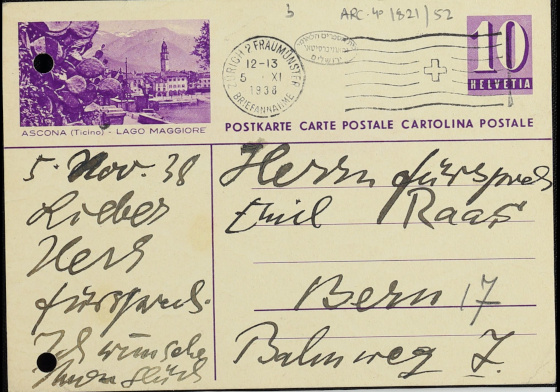 b
ARC. 4° 1821/52
ZÜRICH 2 FRAUMÜNSTER
12-13
5 XI
1938
BRIEFANNAHME
10
HELVETIA
ASCONA (Ticino) - LAGO MAGGIORE
POSTKARTE CARTE POSTALE CARTOLINA POSTALE
5. Nov. 38
Lieber
Herr
Fürsprech.
Ich wünsche
Ihnen Glück
Herrn Fürsprech
Emil Raas
Bern 17
Bahnweg 7.